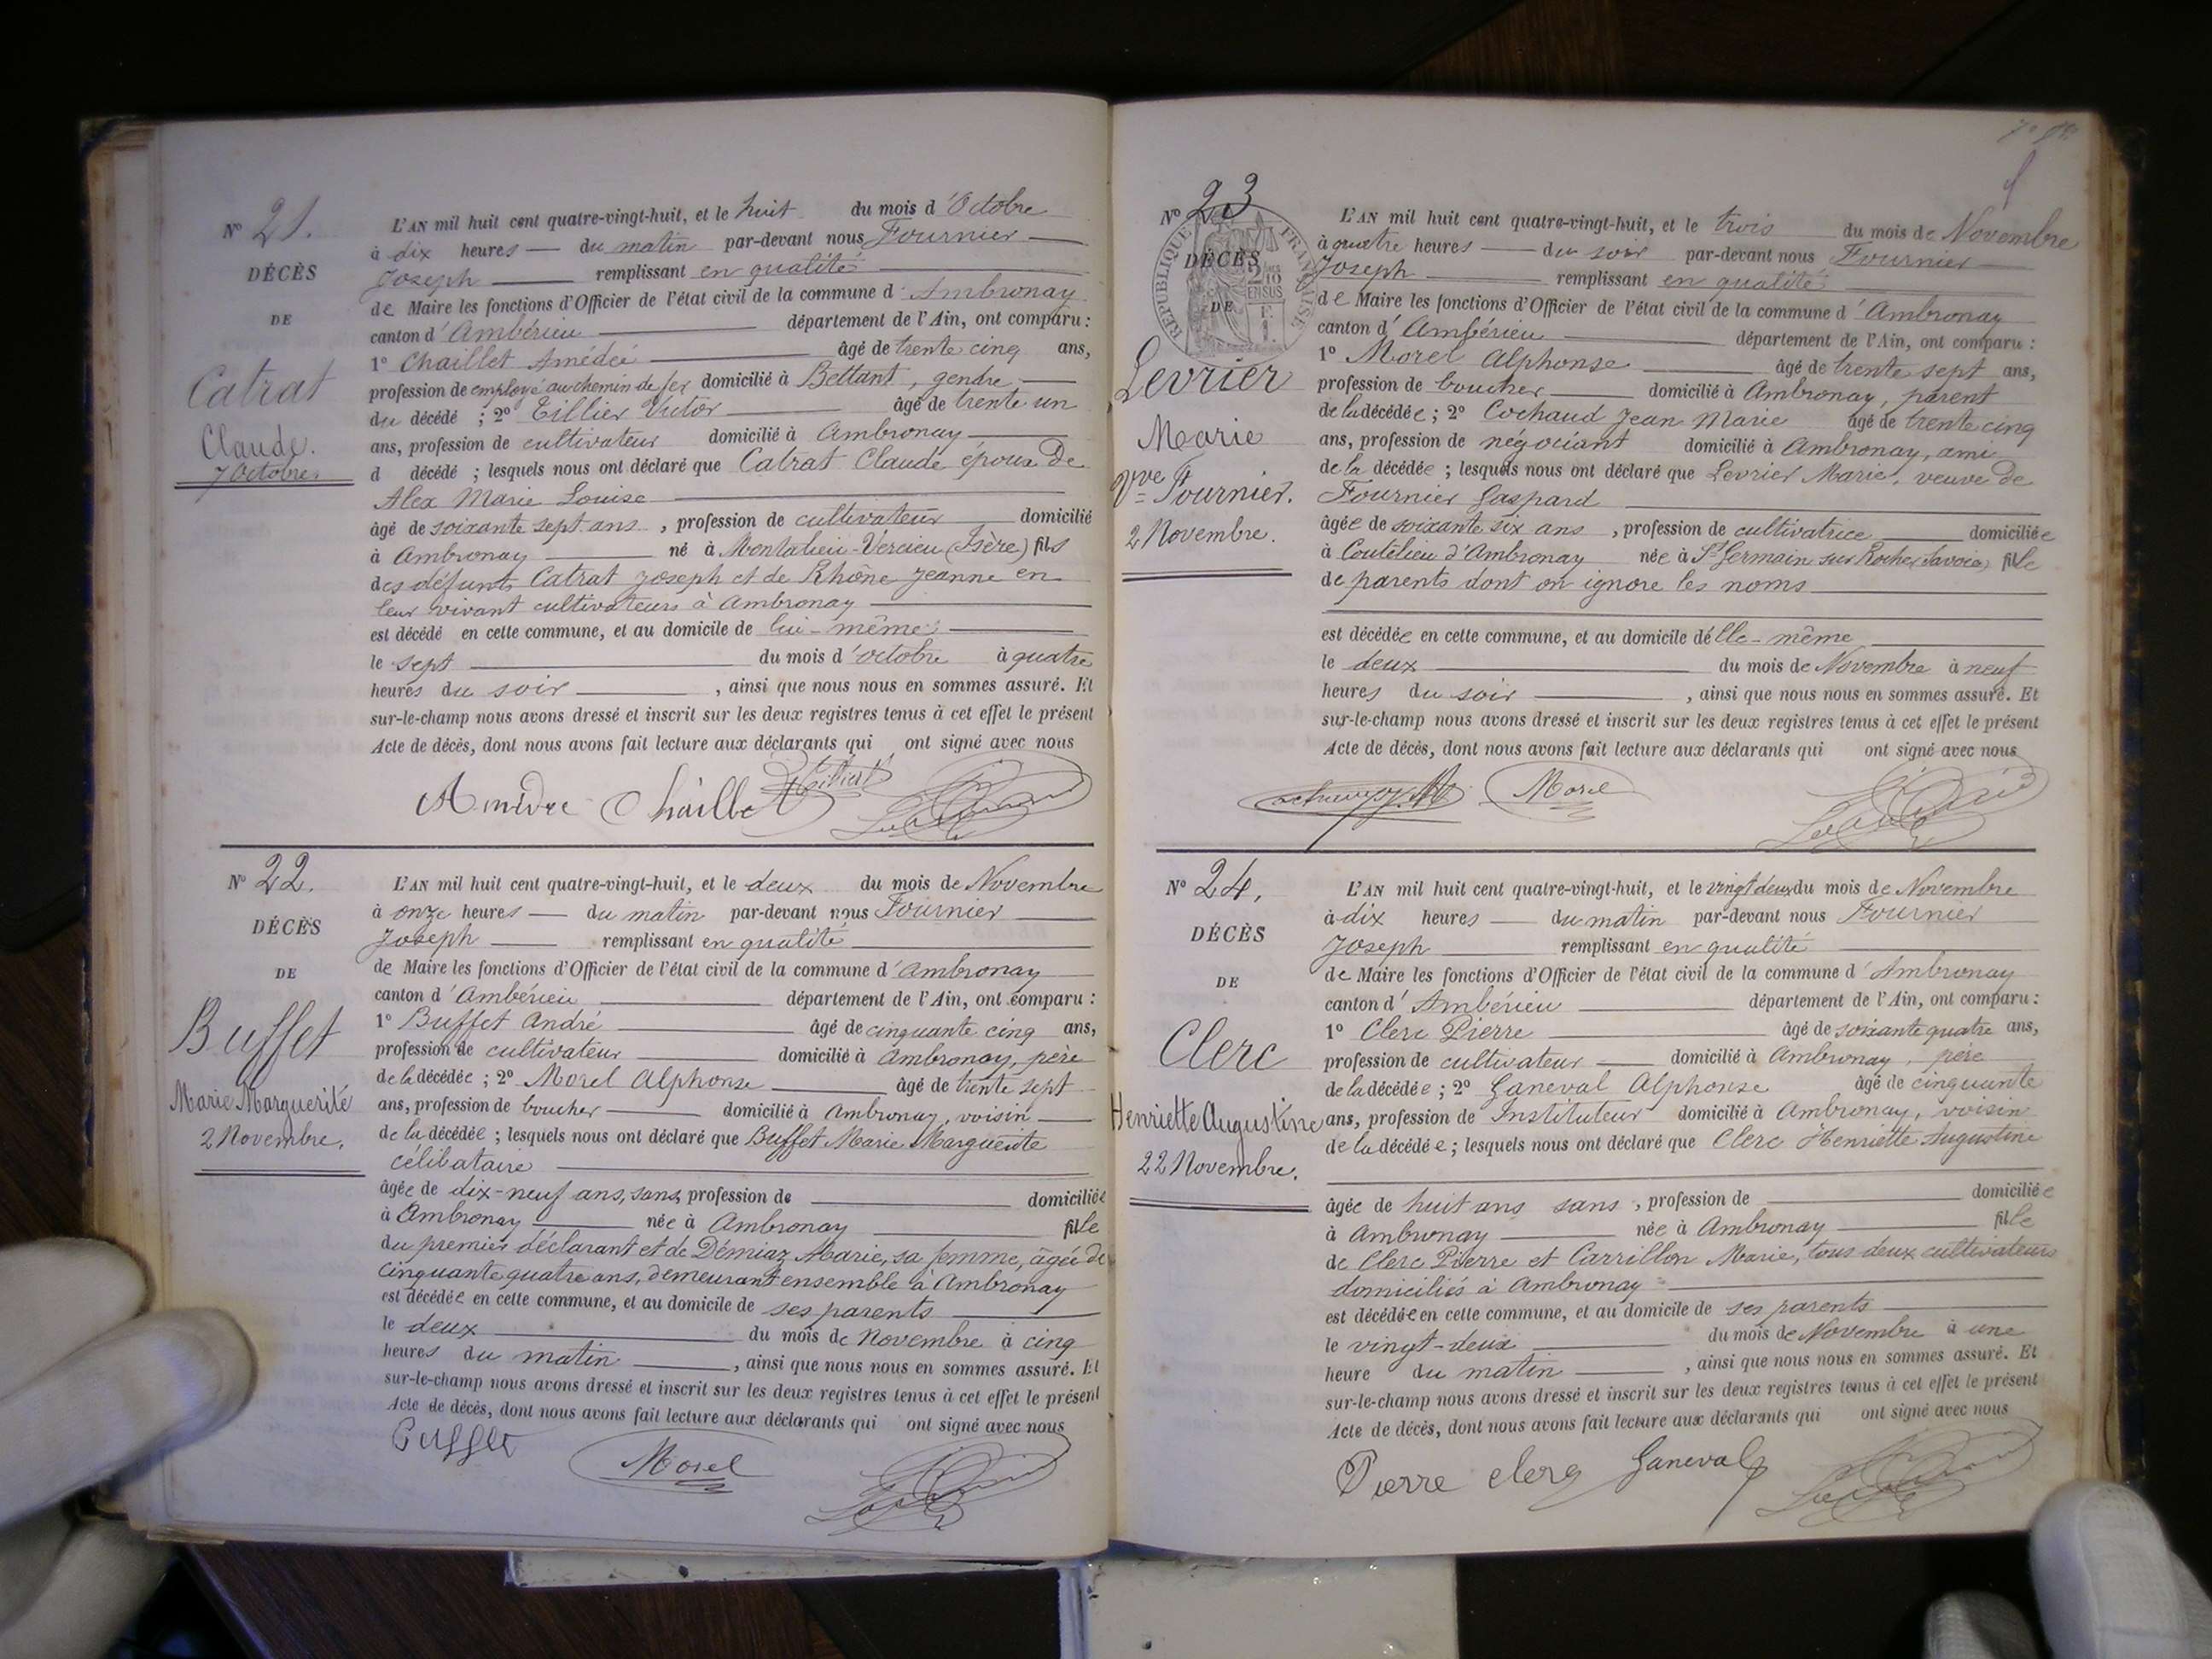 N° 21.
DÉCÈS
DE
Catrat
Claude.
7 Octobre.
L'AN mil huit cent quatre-vingt-huit, et le huit du mois d'Octobre
à dix heures — du matin par-devant nous Fournier —
Joseph — remplissant en qualité —
de Maire les fonctions d'Officier de l'état civil de la commune d'Ambronay
canton d'Ambérieu — département de l'Ain, ont comparu :
1° Chaillet Amédée — âgé de trente cinq ans,
profession de employé au chemin de fer domicilié à Bettant, gendre —
du décédé ; 2° Tillier Victor — âgé de trente un
ans, profession de cultivateur domicilié à Ambronay —
d décédé ; lesquels nous ont déclaré que Catrat Claude époux de
Alex Marie Louise —
âgé de soixante sept ans , profession de cultivateur — domicilié
à Ambronay — né à Montalieu-Vercieu (Isère) fils
des défunts Catrat Joseph et de Rhône Jeanne en
leur vivant cultivateurs à Ambronay —
est décédé en cette commune, et au domicile de lui-même —
le sept — du mois d'octobre à quatre
heures du soir — , ainsi que nous nous en sommes assuré. Et
sur-le-champ nous avons dressé et inscrit sur les deux registres tenus à cet effet le présent
Acte de décès, dont nous avons fait lecture aux déclarants qui ont signé avec nous
Chaillet
N° 22.
DÉCÈS
DE
Buffet
Marie Marguerite
2 Novembre.
L'AN mil huit cent quatre-vingt-huit, et le deux du mois de Novembre
à onze heures — du matin par-devant nous Fournier —
Joseph — remplissant en qualité —
de Maire les fonctions d'Officier de l'état civil de la commune d'Ambronay
canton d'Ambérieu — département de l'Ain, ont comparu :
1° Buffet André — âgé de cinquante cinq ans,
profession de cultivateur — domicilié à Ambronay, père
de la décédée ; 2° Morel Alphonse — âgé de trente sept
ans, profession de boucher — domicilié à Ambronay, voisin —
de la décédée ; lesquels nous ont déclaré que Buffet Marie Marguerite
célibataire —
âgée de dix-neuf ans, sans profession de — domiciliée
à Ambronay — née à Ambronay — fille
du premier déclarant et de Démiaz Marie, sa femme, âgée de
cinquante quatre ans, demeurant ensemble à Ambronay
est décédée en cette commune, et au domicile de ses parents —
le deux — du mois de Novembre à cinq
heures du matin — , ainsi que nous nous en sommes assuré. Et
sur-le-champ nous avons dressé et inscrit sur les deux registres tenus à cet effet le présent
Acte de décès, dont nous avons fait lecture aux déclarants qui ont signé avec nous
Buffet Morel
N° 23
RÉPUBLIQUE FRANÇAISE
DÉCÈS
DE
Levrier
Marie
Vve Fournier.
2 Novembre.
L'AN mil huit cent quatre-vingt-huit, et le trois du mois de Novembre
à quatre heures — du soir par-devant nous Fournier —
Joseph — remplissant en qualité —
de Maire les fonctions d'Officier de l'état civil de la commune d'Ambronay
canton d'Ambérieu — département de l'Ain, ont comparu :
1° Morel Alphonse — âgé de trente sept ans,
profession de boucher — domicilié à Ambronay, parent
de la décédée ; 2° Cochaud Jean Marie âgé de trente cinq
ans, profession de négociant domicilié à Ambronay, ami
de la décédée ; lesquels nous ont déclaré que Levrier Marie, veuve de
Fournier Gaspard —
âgée de soixante six ans , profession de cultivatrice — domiciliée
à Coutelieu d'Ambronay née à St Germain sur Rocher (Savoie) fille
de parents dont on ignore les noms —
est décédée en cette commune, et au domicile d'elle-même —
le deux — du mois de Novembre à neuf
heures du soir — , ainsi que nous nous en sommes assuré. Et
sur-le-champ nous avons dressé et inscrit sur les deux registres tenus à cet effet le présent
Acte de décès, dont nous avons fait lecture aux déclarants qui ont signé avec nous
Morel
N° 24.
DÉCÈS
DE
Clerc
Henriette Augustine
22 Novembre.
L'AN mil huit cent quatre-vingt-huit, et le vingt deux du mois de Novembre
à dix heures — du matin par-devant nous Fournier
Joseph — remplissant en qualité —
de Maire les fonctions d'Officier de l'état civil de la commune d'Ambronay
canton d'Ambérieu — département de l'Ain, ont comparu :
1° Clerc Pierre — âgé de soixante quatre ans,
profession de cultivateur — domicilié à Ambronay, père
de la décédée ; 2° Ganeval Alphonse âgé de cinquante
ans, profession de Instituteur domicilié à Ambronay, voisin
de la décédée ; lesquels nous ont déclaré que Clerc Henriette Augustine
âgée de huit ans sans , profession de — domiciliée
à Ambronay — née à Ambronay — fille
de Clerc Pierre et Carrillon Marie, tous deux cultivateurs
domiciliés à Ambronay —
est décédée en cette commune, et au domicile de ses parents —
le vingt-deux — du mois de Novembre à une
heure du matin — , ainsi que nous nous en sommes assuré. Et
sur-le-champ nous avons dressé et inscrit sur les deux registres tenus à cet effet le présent
Acte de décès, dont nous avons fait lecture aux déclarants qui ont signé avec nous
Pierre clerc Ganeval